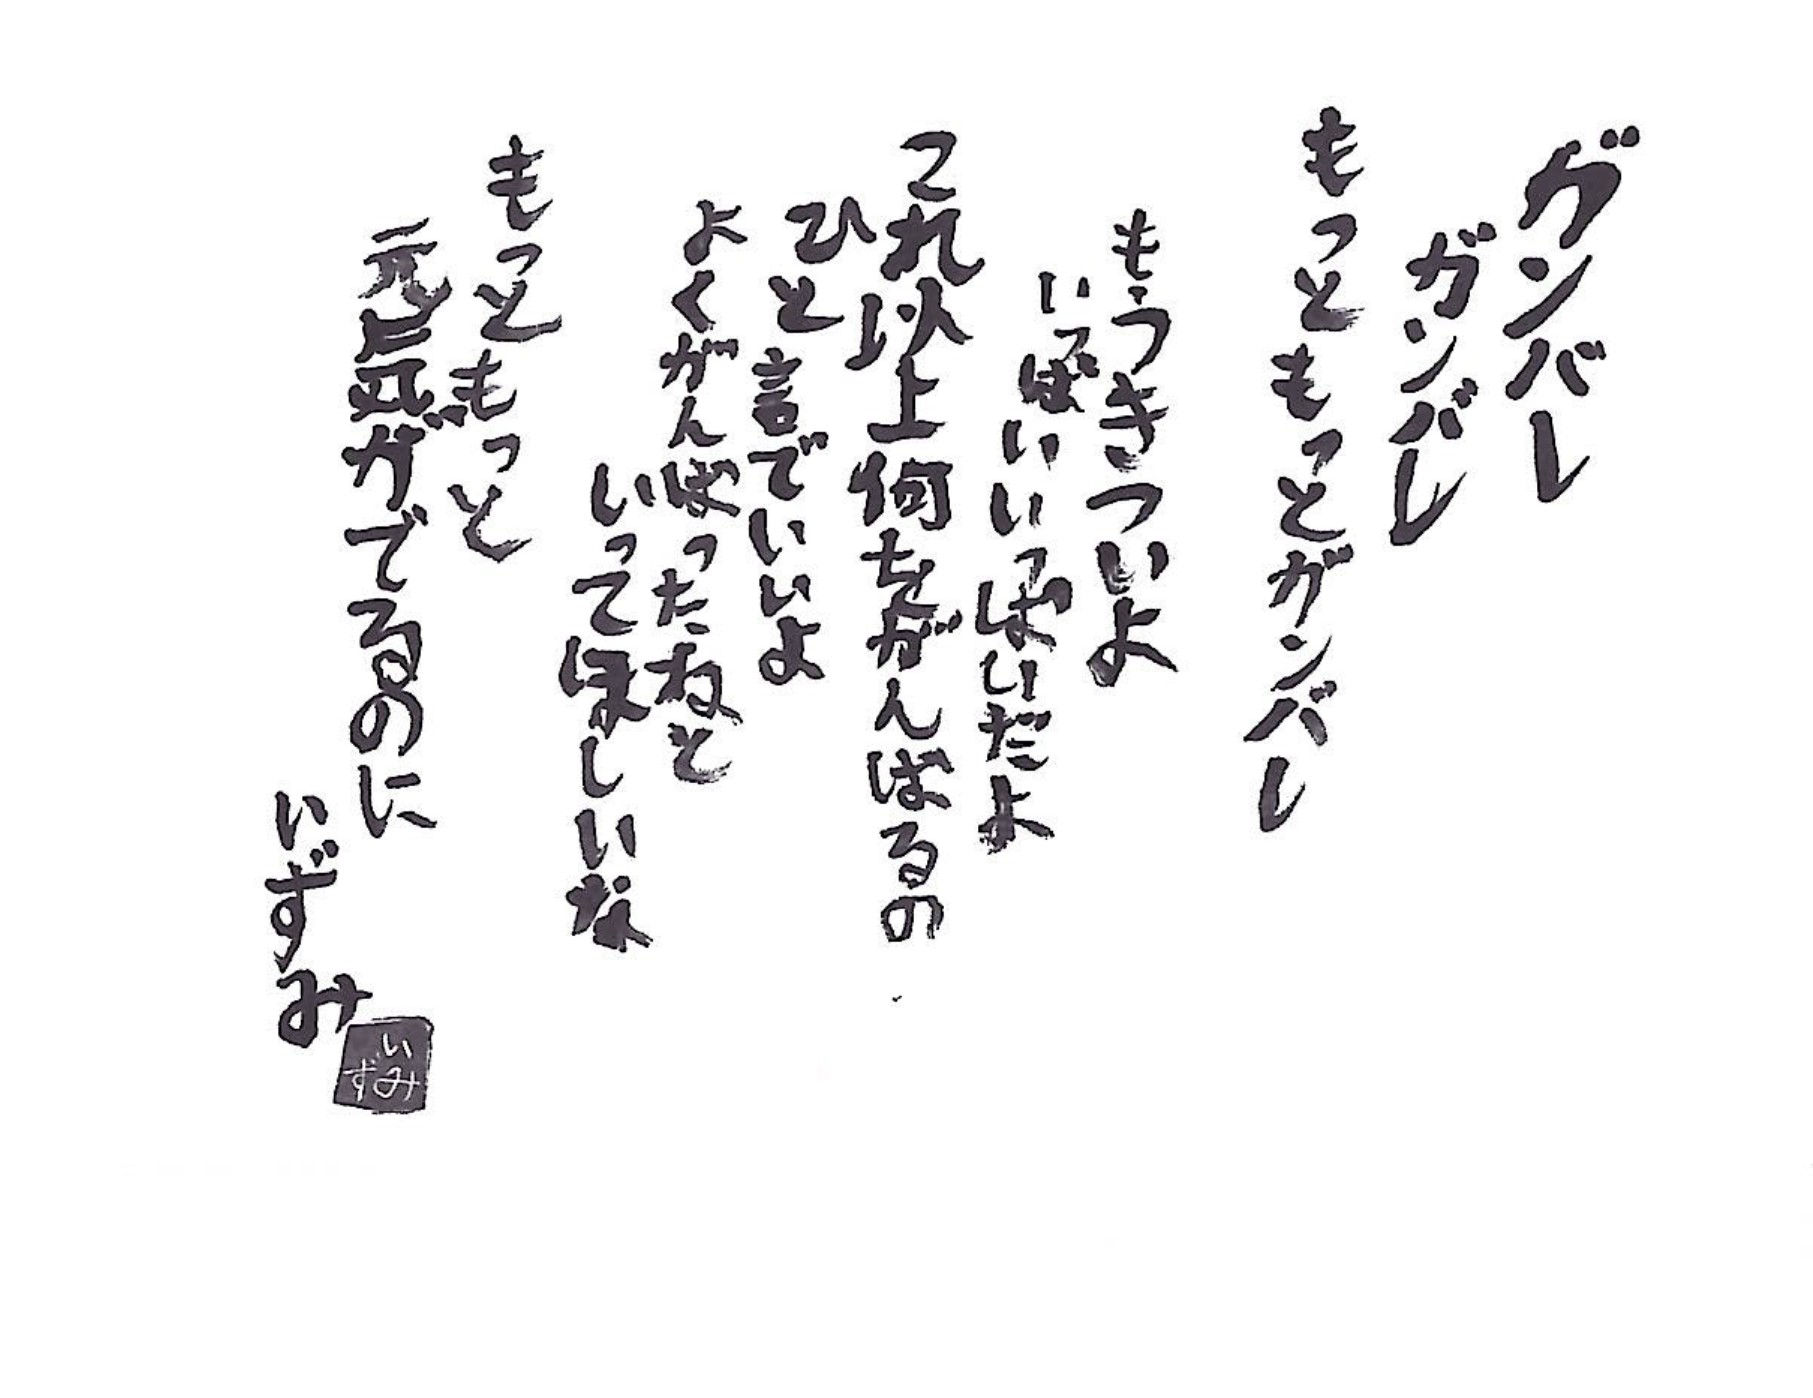 ガンバレ
ガンバレ
もっともっとガンバレ
もうきついよ
いっぱいいっぱいだよ
これ以上何をがんばるの
ひと言でいいよ
よくがんばったねと
いってほしいな
もっともっと
元気がでるのに
いずみ
いずみ